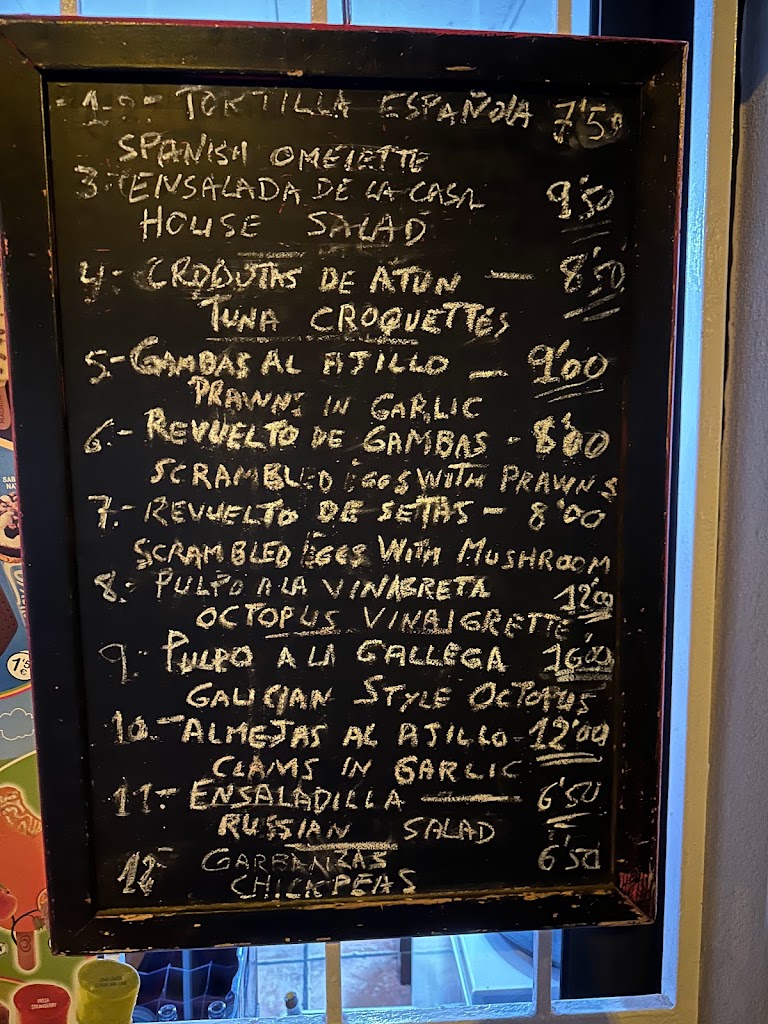 1-2- TORTILLA ESPAÑOLA 7'50
SPANISH OMELETTE
3- ENSALADA DE LA CASA 9'50
HOUSE SALAD
4- CROQUTAS DE ATUN — 8'50
TUNA CROQUETTES
5- GAMBAS AL AJILLO — 9'00
PRAWNS IN GARLIC
6.- REVUELTO DE GAMBAS - 8'00
SCRAMBLED EGGS WITH PRAWNS
7.- REVUELTO DE SETAS - 8'00
SCRAMBLED EGGS WITH MUSHROOM
8.- PULPO A LA VINAGRETA 12'00
OCTOPUS VINAIGRETTE
9- PULPO A LA GALLEGA 16'00
GALICIAN STYLE OCTOPUS
10.- ALMEJAS AL AJILLO - 12'00
CLAMS IN GARLIC
11.- ENSALADILLA — 6'50
RUSSIAN SALAD
12- GARBANZAS 6'50
CHICKPEAS
FRESA
STRAWBERRY